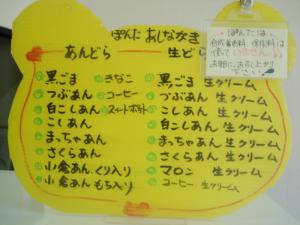 ぽんた おしながき
あんどら
黒ごま
きなこ
つぶあん
コーヒー
白こしあん
スイートポテト
こしあん
まっちゃあん
さくらあん
小倉あん くり入り
小倉あん もち入り
生どら
黒ごま 生クリーム
つぶあん 生クリーム
こしあん 生クリーム
白こしあん 生クリーム
まっちゃあん 生クリーム
さくらあん 生クリーム
マロン 生クリーム
コーヒー 生クリーム
ぽんたでは
合成着色料、保存料は
使っていません
お早めにお召し上がり
下さい